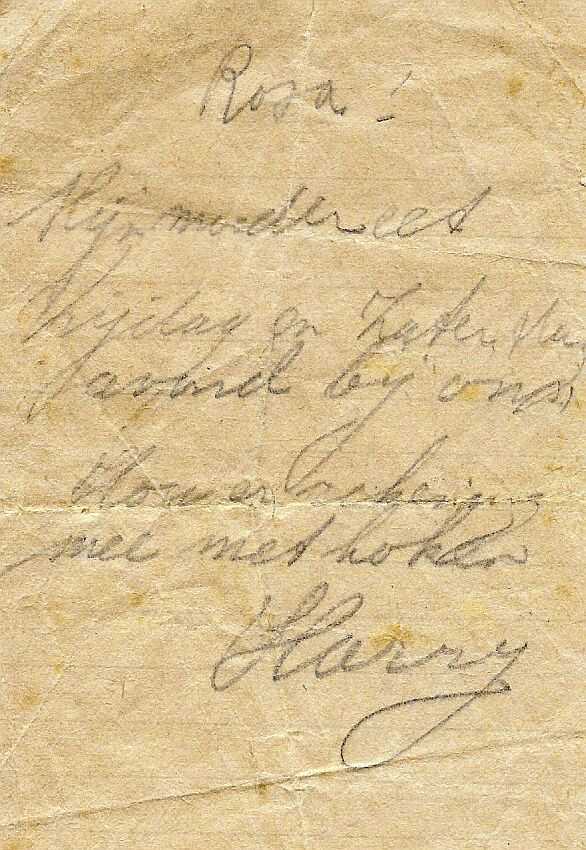 Rosa!
Mijn moeder eet
Vrijdag en Zaterda
avond by ons
Hou er rekening
mee met koken
Harry